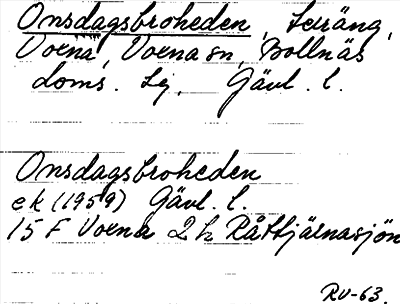 Onsdagsbroheden, Leiräng,
Voxna, Voxna sn, Bollnäs
doms. Lg, Gävl. l.
Onsdagsbroheden
ek (1959) Gävl. l.
15 F Voxna 2 h Råttjärnasjön
RV-63.